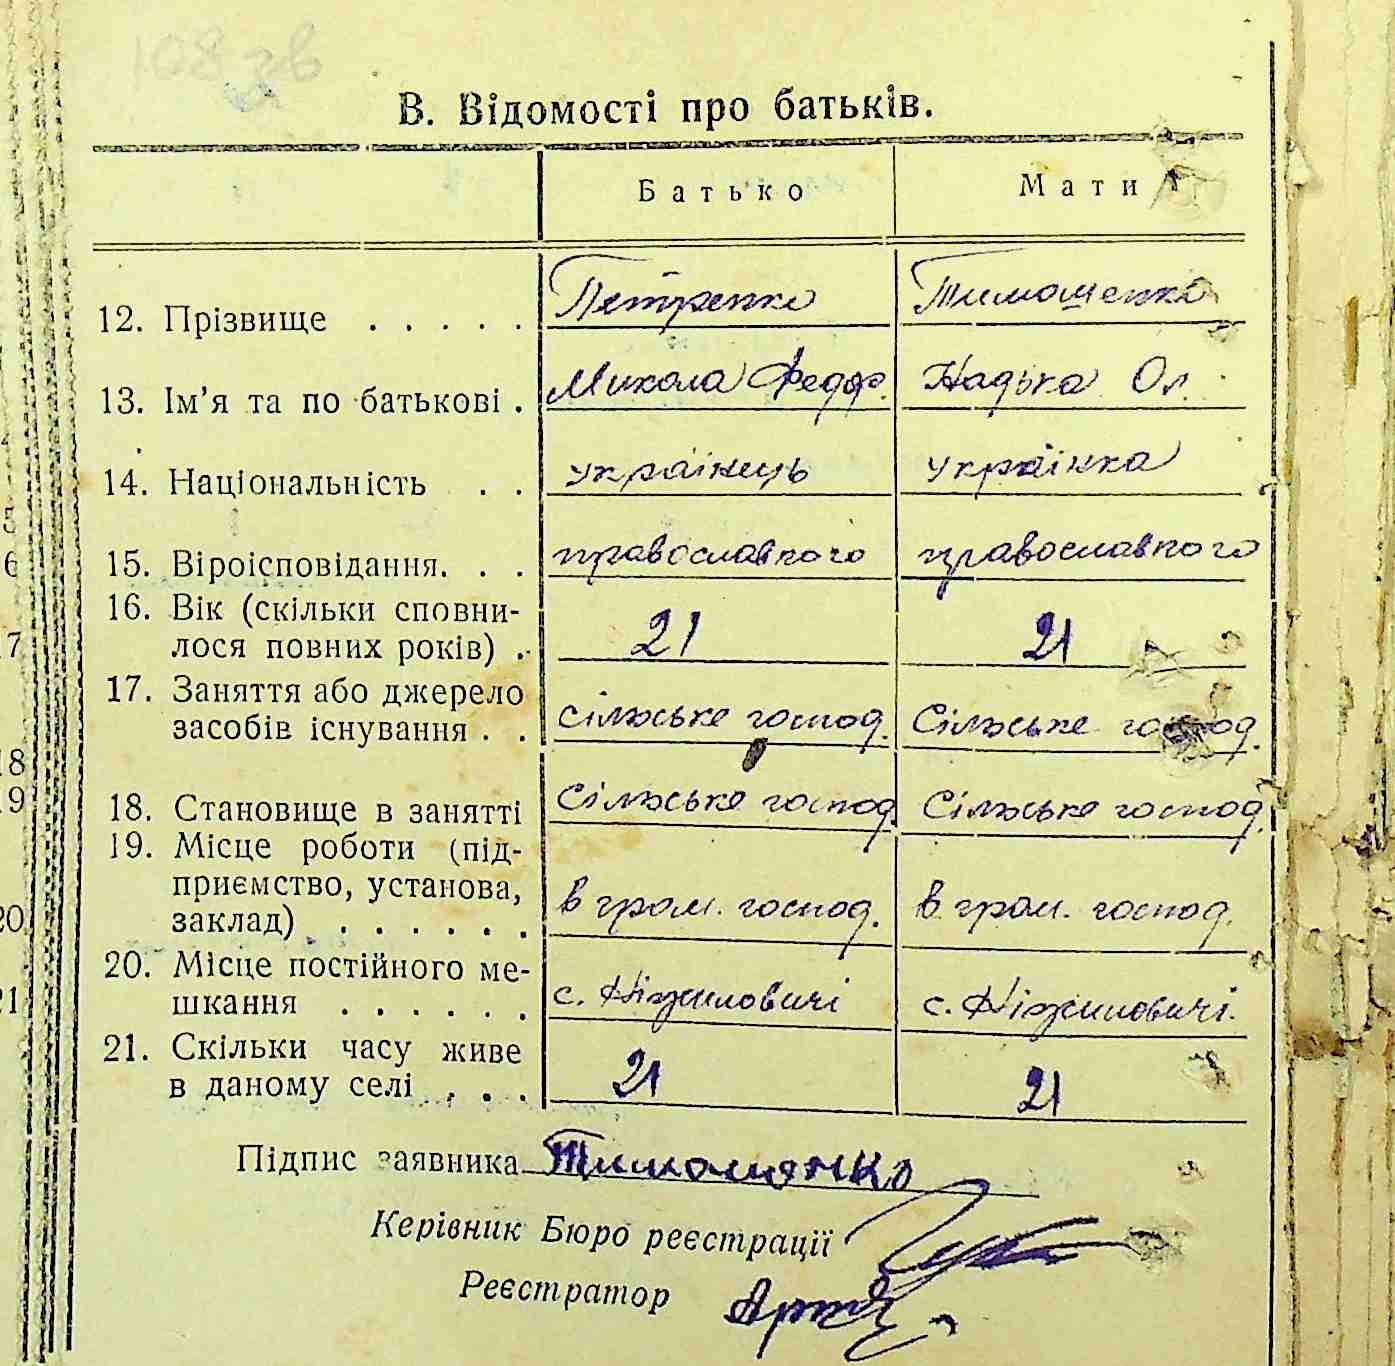 108 зв
В. Відомості про батьків.
Батько Мати
12. Прізвище . . . . . Петренко Тимошенко
13. Ім'я та по батькові . Микола Федор. Надька Ол.
14. Національність . . українець українка
15. Віроісповідання. . . православного православного
16. Вік (скільки сповни-
лося повних років) . . 21 21
17. Заняття або джерело
засобів існування . . сільське господ. Сільське господ.
18. Становище в занятті Сільське господ. Сільське господ.
19. Місце роботи (під-
приємство, установа,
заклад) . . . . . . в гром. господ. в гром. господ.
20. Місце постійного ме-
шкання . . . . . . с. Ніжиловичі с. Ніжиловичі.
21. Скільки часу живе
в даному селі . . . 21 21
Підпис заявника Тимошенко
Керівник Бюро реєстрації
Реєстратор